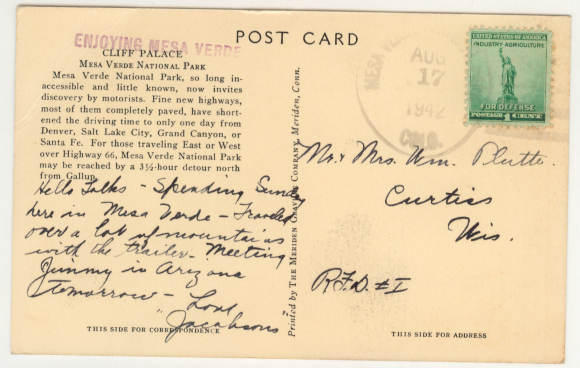 ENJOYING MESA VERDE
CLIFF PALACE
MESA VERDE NATIONAL PARK
Mesa Verde National Park, so long in-
accessible and little known, now invites
discovery by motorists. Fine new highways,
most of them completely paved, have short-
ened the driving time to only one day from
Denver, Salt Lake City, Grand Canyon, or
Santa Fe. For those traveling East or West
over Highway 66, Mesa Verde National Park
may be reached by a 3½-hour detour north
from Gallup.
Hello Folks - Spending Sunday
here in Mesa Verde - Traveled
over a lot of mountains
with the trailer - Meeting
Jimmy in Arizona
tomorrow - Love
Jacobsons
THIS SIDE FOR CORRESPONDENCE
Printed by THE MERIDEN GRAVURE COMPANY, Meriden, Conn.
POST CARD
MESA VERDE
AUG
17
1942
COLO.
UNITED STATES OF AMERICA
INDUSTRY-AGRICULTURE
FOR DEFENSE
POSTAGE 1 CENT
Mr. & Mrs. Wm. Plutte.
Curtiss
Wis.
R.F.D. #1
THIS SIDE FOR ADDRESS